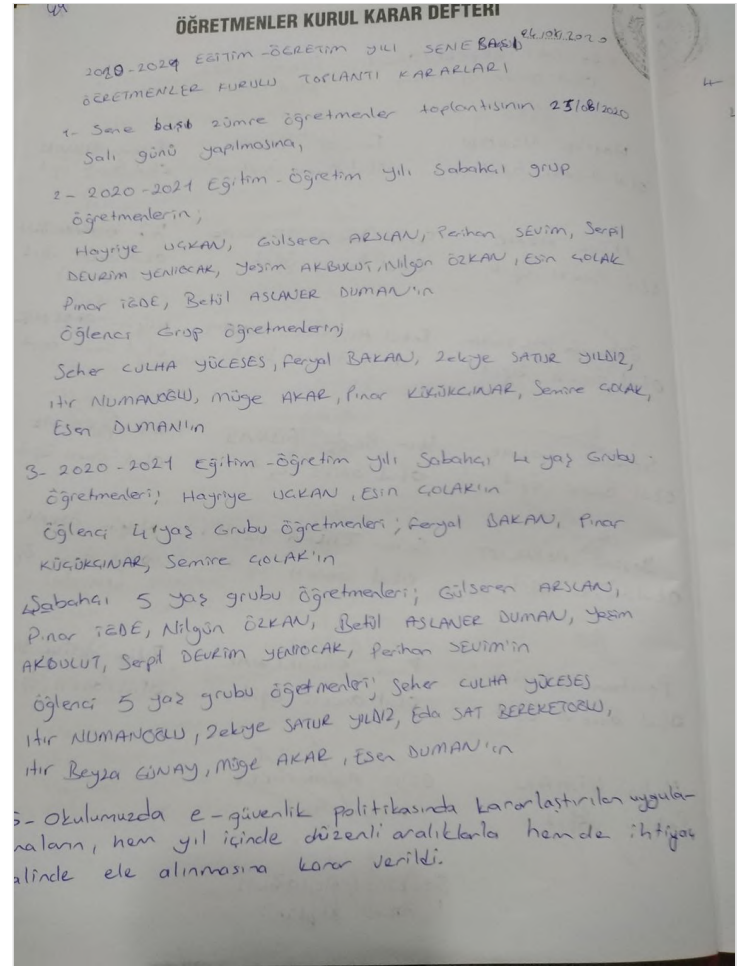 44
ÖĞRETMENLER KURUL KARAR DEFTERİ
2020-2021 EĞİTİM-ÖĞRETİM YILI SENE BAŞI 24/08/2020
ÖĞRETMENLER KURULU TOPLANTI KARARLARI
1- Sene başı zümre öğretmenler toplantısının 25/08/2020
Salı günü yapılmasına,
2- 2020-2021 Eğitim-Öğretim yılı Sabahçı grup
öğretmenlerin;
Hayriye UÇKAN, Gülseren ARSLAN, Perihan SEVİM, Serpil
DEVRİM YENİOCAK, Yeşim AKBULUT, Nilgün ÖZKAN, Esin ÇOLAK
Pınar İZDE, Betül ASLANER DUMAN'ın
Öğlenci Grup öğretmenlerin;
Seher CULHA YÜCESES, Feryal BAKAN, Zekiye SATUR YILDIZ,
Itır NUMANOĞLU, Müge AKAR, Pınar KÜÇÜKÇINAR, Semire ÇOLAK,
Esen DUMAN'ın
3- 2020-2021 Eğitim-Öğretim yılı Sabahçı 4 yaş Grubu
öğretmenleri; Hayriye UÇKAN, Esin ÇOLAK'ın
Öğlenci 4 yaş Grubu öğretmenleri; Feryal BAKAN, Pınar
KÜÇÜKÇINAR, Semire ÇOLAK'ın
4- Sabahçı 5 yaş grubu öğretmenleri; Gülseren ARSLAN,
Pınar İZDE, Nilgün ÖZKAN, Betül ASLANER DUMAN, Yeşim
AKBULUT, Serpil DEVRİM YENİOCAK, Perihan SEVİM'in
Öğlenci 5 yaş grubu öğetmenleri; Seher CULHA YÜCESES
Itır NUMANOĞLU, Zekiye SATUR YILDIZ, Eda SAT BEREKETOĞLU,
Itır Beyza GÜNAY, Müge AKAR, Esen DUMAN'ın
5- Okulumuzda e-güvenlik politikasında kararlaştırılan uygula-
maların, hem yıl içinde düzenli aralıklarla hem de ihtiyaç
alinde ele alınmasına karar verildi.